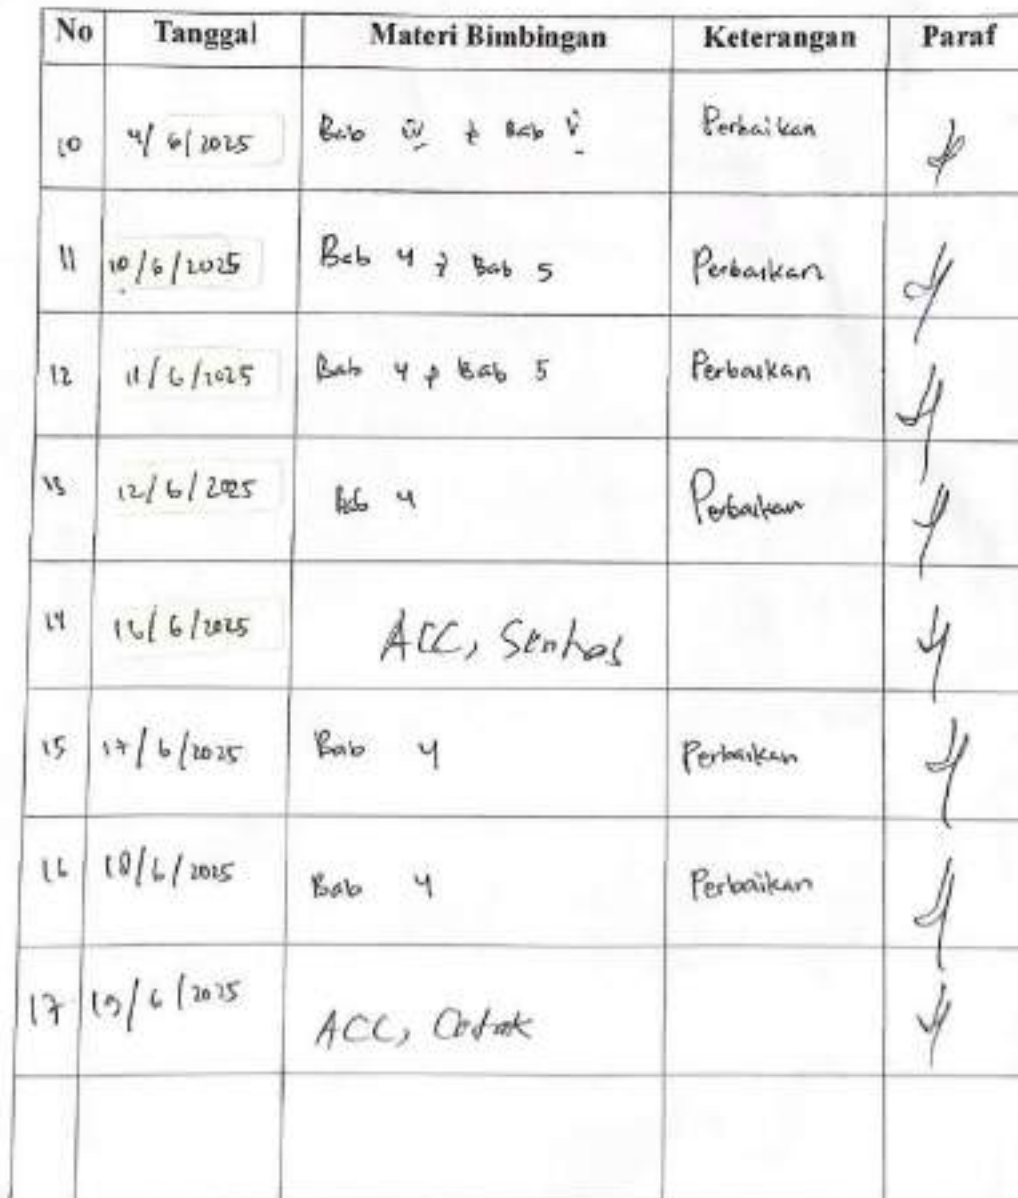 No Tanggal Materi Bimbingan Keterangan Paraf
10 4/6/2025 Bab IV & Bab V Perbaikan
11 10/6/2025 Bab 4 & Bab 5 Perbaikan
12 11/6/2025 Bab 4 & Bab 5 Perbaikan
13 12/6/2025 Bab 4 Perbaikan
14 16/6/2025 ACC, Semhas
15 17/6/2025 Bab 4 Perbaikan
16 18/6/2025 Bab 4 Perbaikan
17 19/6/2025 ACC, Cetak